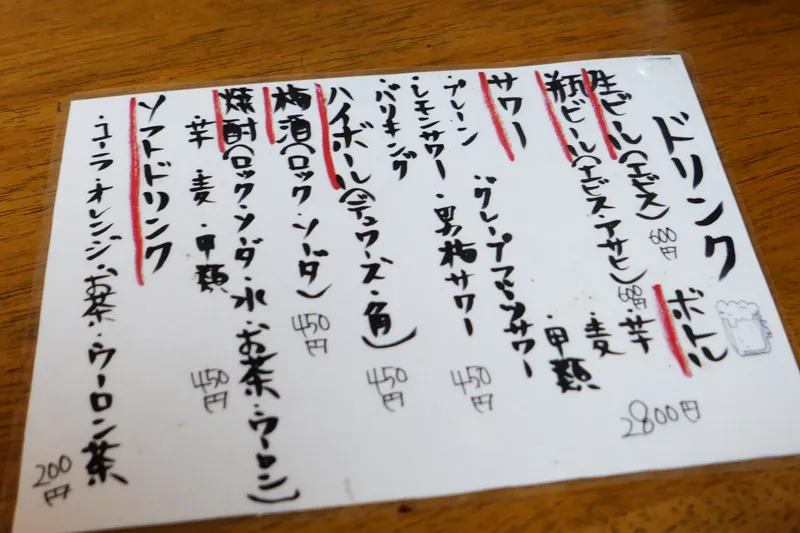 ドリンク
生ビール(エビス) 600円
瓶ビール(エビス・アサヒ) 600円
ボトル
芋
麦
甲類
2800円
サワー
・プレーン ・グレープフルーツサワー
・レモンサワー ・男梅サワー
・バリキング
450円
ハイボール(デュワーズ・角) 450円
梅酒(ロック・ソーダ) 450円
焼酎(ロック・ソーダ・水・お茶・ウーロン)
芋 麦 甲類 450円
ソフトドリンク
・コーラ・オレンジ・お茶・ウーロン茶
200円